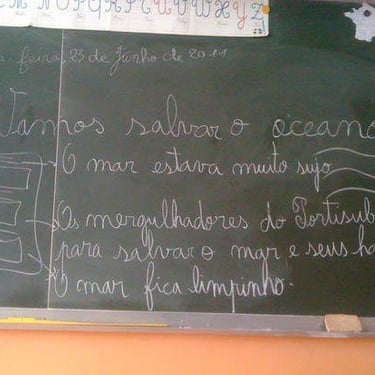 M N O P Q R S T U V W X Y Z
feira, 23 de Junho de 2011
Vamos salvar o oceano
O mar estava muito sujo
Os mergulhadores do Portisub
para salvar o mar e seus ha
O mar fica limpinho.